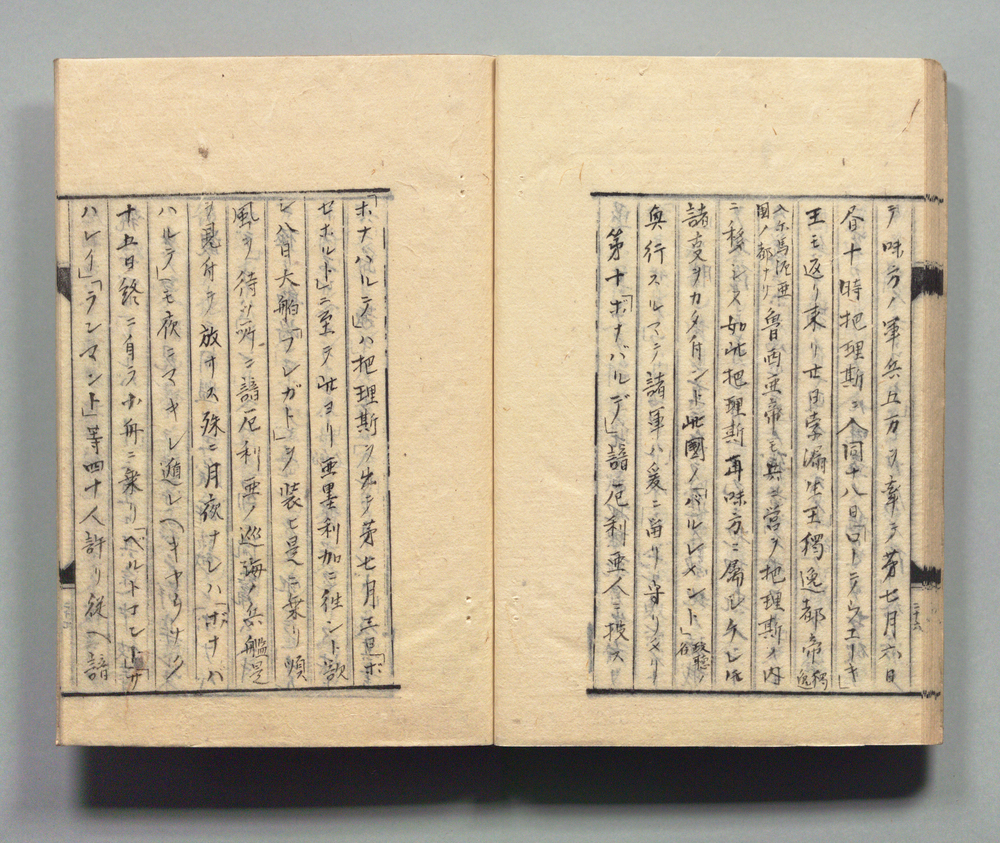 テ味方ノ軍兵五万ヲ牽テ第七月六日
昼十時把理斯ニ入同十八日「ロードテウエリキ」
王モ返リ来リ廿日孛漏生王独逸都帝独逸
入尓馬泥亜国ノ都ナリ魯西亜帝モ共ニ営ヲ把理斯ノ内
ニ移シス如此把理斯再味方ニ属シケレ𪜈
諸支ヲカタ付ントシ此国ノ「バルレメント」政聴ノ
奥行スルマテ諸軍ハ爰ニ留リ守リメリ
第十「ボナバルデ」諳厄利亜人ニ投ス
「ボナハルテ」ハ把理斯ヲ出テ第七月三日「ボ
セホルト」ニ至テ此ヨリ亜墨利加ニ往ント欲
シ曽大舶「フレガト」ヲ装ヒ是ニ乗リ順
風ヲ待ツ所ニ諳厄利亜ノ巡海ノ兵艦是
ヲ見付テ放サス殊ニ月夜ナレハ「ボナハ
ハルテ」モ夜ニマキレ遁レヘキヤウナク
十五日終ニ自ラ小舟ニ乗リ「ベルトロント」「サ
ハレイ」「ランマント」等四十人許リ従ヘ諳